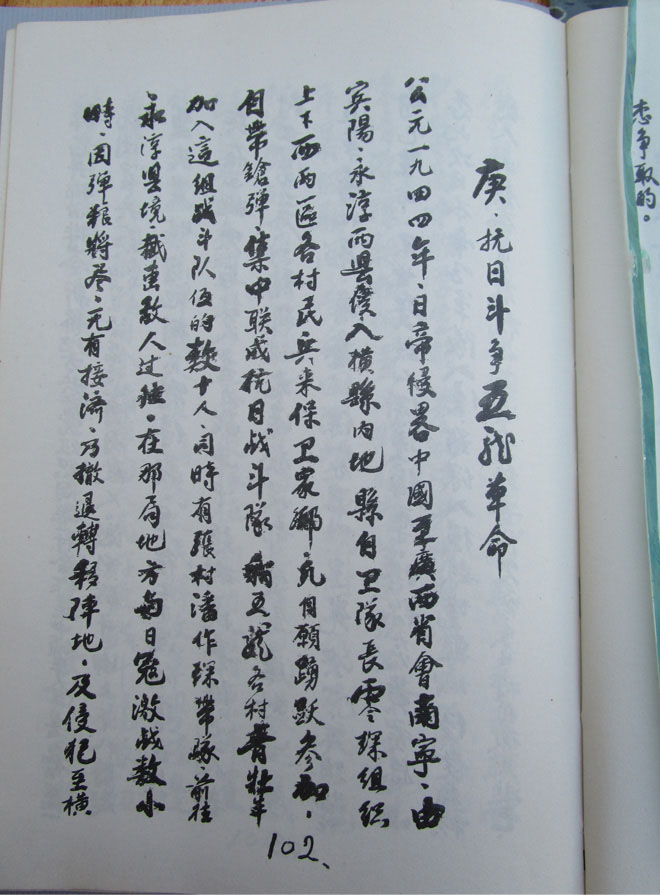 庚、抗日斗争五龙革命
公元一九四四年、日帝侵畧中國至廣西省會南寧、由
宾陽、永淳两县侵入横縣内地縣自卫隊長雷琛组织
上下西两區各村民兵来保卫家鄉、凢自願踴跃参加、
自带鎗弹、集中联成抗日战斗隊、我五龍各村青壮年
加入這组战斗队伍的数十人、同時有張村潘作琛带隊、前往
永淳县境、截击敌人过往。在那局地方与日冦激战数小
時、因弹粮將尽、无有接济、乃撤退轉移陣地、及侵犯至横
102、
态争取的。